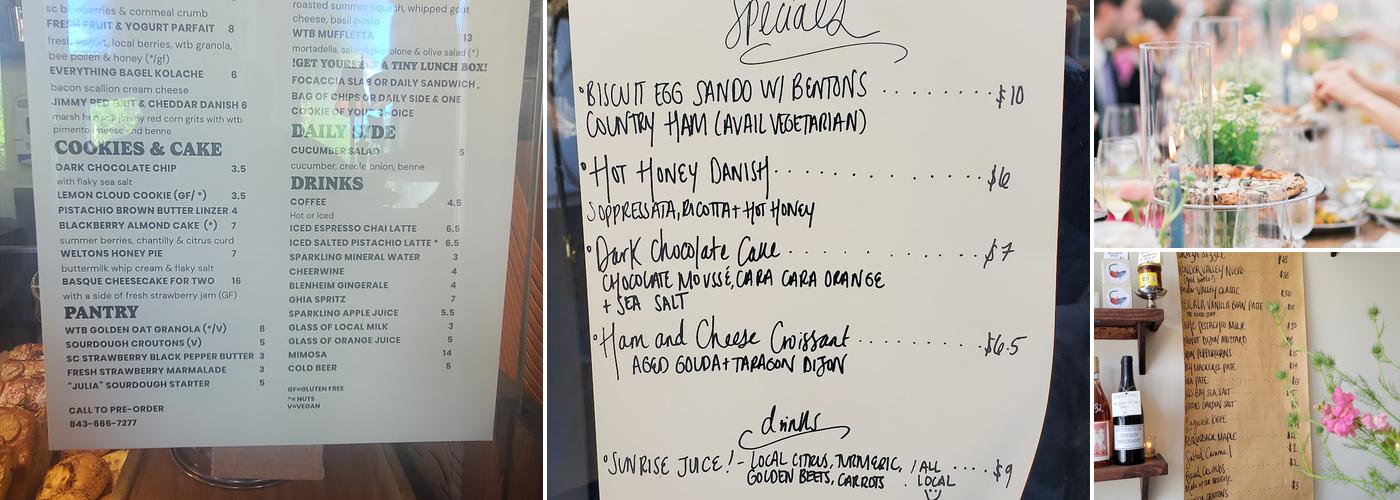 sc blueberries & cornmeal crumb
FRESH FRUIT & YOGURT PARFAIT 8
fresh yogurt, local berries, wtb granola,
bee pollen & honey (*/gf)
EVERYTHING BAGEL KOLACHE 6
bacon scallion cream cheese
JIMMY RED GRIT & CHEDDAR DANISH 6
marsh hen mill jimmy red corn grits with wtb
pimento cheese and benne
COOKIES & CAKE
DARK CHOCOLATE CHIP 3.5
with flaky sea salt
LEMON CLOUD COOKIE (GF/ *) 3.5
PISTACHIO BROWN BUTTER LINZER 4
BLACKBERRY ALMOND CAKE (*) 7
summer berries, chantilly & citrus curd
WELTONS HONEY PIE 7
buttermilk whip cream & flaky salt
BASQUE CHEESECAKE FOR TWO 16
with a side of fresh strawberry jam (GF)
PANTRY
WTB GOLDEN OAT GRANOLA (*/V) 8
SOURDOUGH CROUTONS (V) 5
SC STRAWBERRY BLACK PEPPER BUTTER 3
FRESH STRAWBERRY MARMALADE 3
"JULIA" SOURDOUGH STARTER 5
CALL TO PRE-ORDER
843-666-7277
roasted summer squash, whipped goat
cheese, basil pesto
WTB MUFFLETTA 13
mortadella, salami, provolone & olive salad (*)
!GET YOURSELF A TINY LUNCH BOX!
FOCACCIA SLAB OR DAILY SANDWICH,
BAG OF CHIPS OR DAILY SIDE & ONE
COOKIE OF YOUR CHOICE
DAILY SIDE
CUCUMBER SALAD 5
cucumber, creole onion, benne
DRINKS
COFFEE 4.5
Hot or Iced
ICED ESPRESSO CHAI LATTE 6.5
ICED SALTED PISTACHIO LATTE * 6.5
SPARKLING MINERAL WATER 3
CHEERWINE 4
BLENHEIM GINGERALE 4
GHIA SPRITZ 7
SPARKLING APPLE JUICE 5.5
GLASS OF LOCAL MILK 3
GLASS OF ORANGE JUICE 5
MIMOSA 14
COLD BEER 5
GF=GLUTEN FREE
*= NUTS
V=VEGAN
Specials
°BISCUIT EGG SANDO W/ BENTONS ........ $10
COUNTRY HAM (AVAIL VEGETARIAN)
°HOT HONEY DANISH ............. $6
SOPPRESSATA, RICOTTA + HOT HONEY
°Dark Chocolate Cake ............. $7
CHOCOLATE MOUSSE, CARA CARA ORANGE
+ SEA SALT
°Ham and Cheese Croissant ........ $6.5
AGED GOUDA + TARAGON DIJON
drinks
°SUNRISE JUICE! - LOCAL CITRUS, TURMERIC, / ALL .... $9
GOLDEN BEETS, CARROTS . LOCAL
VANILLA BEAN PASTE
PISTACHIO MILK
DIJON MUSTARD
PEPPERCORNS
MACKEREL PATE
BAY SEA SALT
GARDEN SALT
KNIFE
ADIRONDACK MAPLE
Salted Caramel
Bread Crumbs
CROUTONS